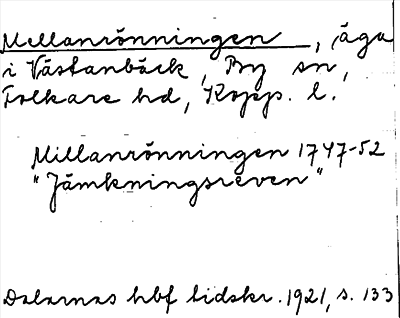 Mellanrönningen, äga
i Västanbäck, By sn,
Folkare hd, Kopp. l.
Millanrönningen 1747-52
"Jämkningsreven"
Dalarnas hbf tidskr. 1921, s. 133